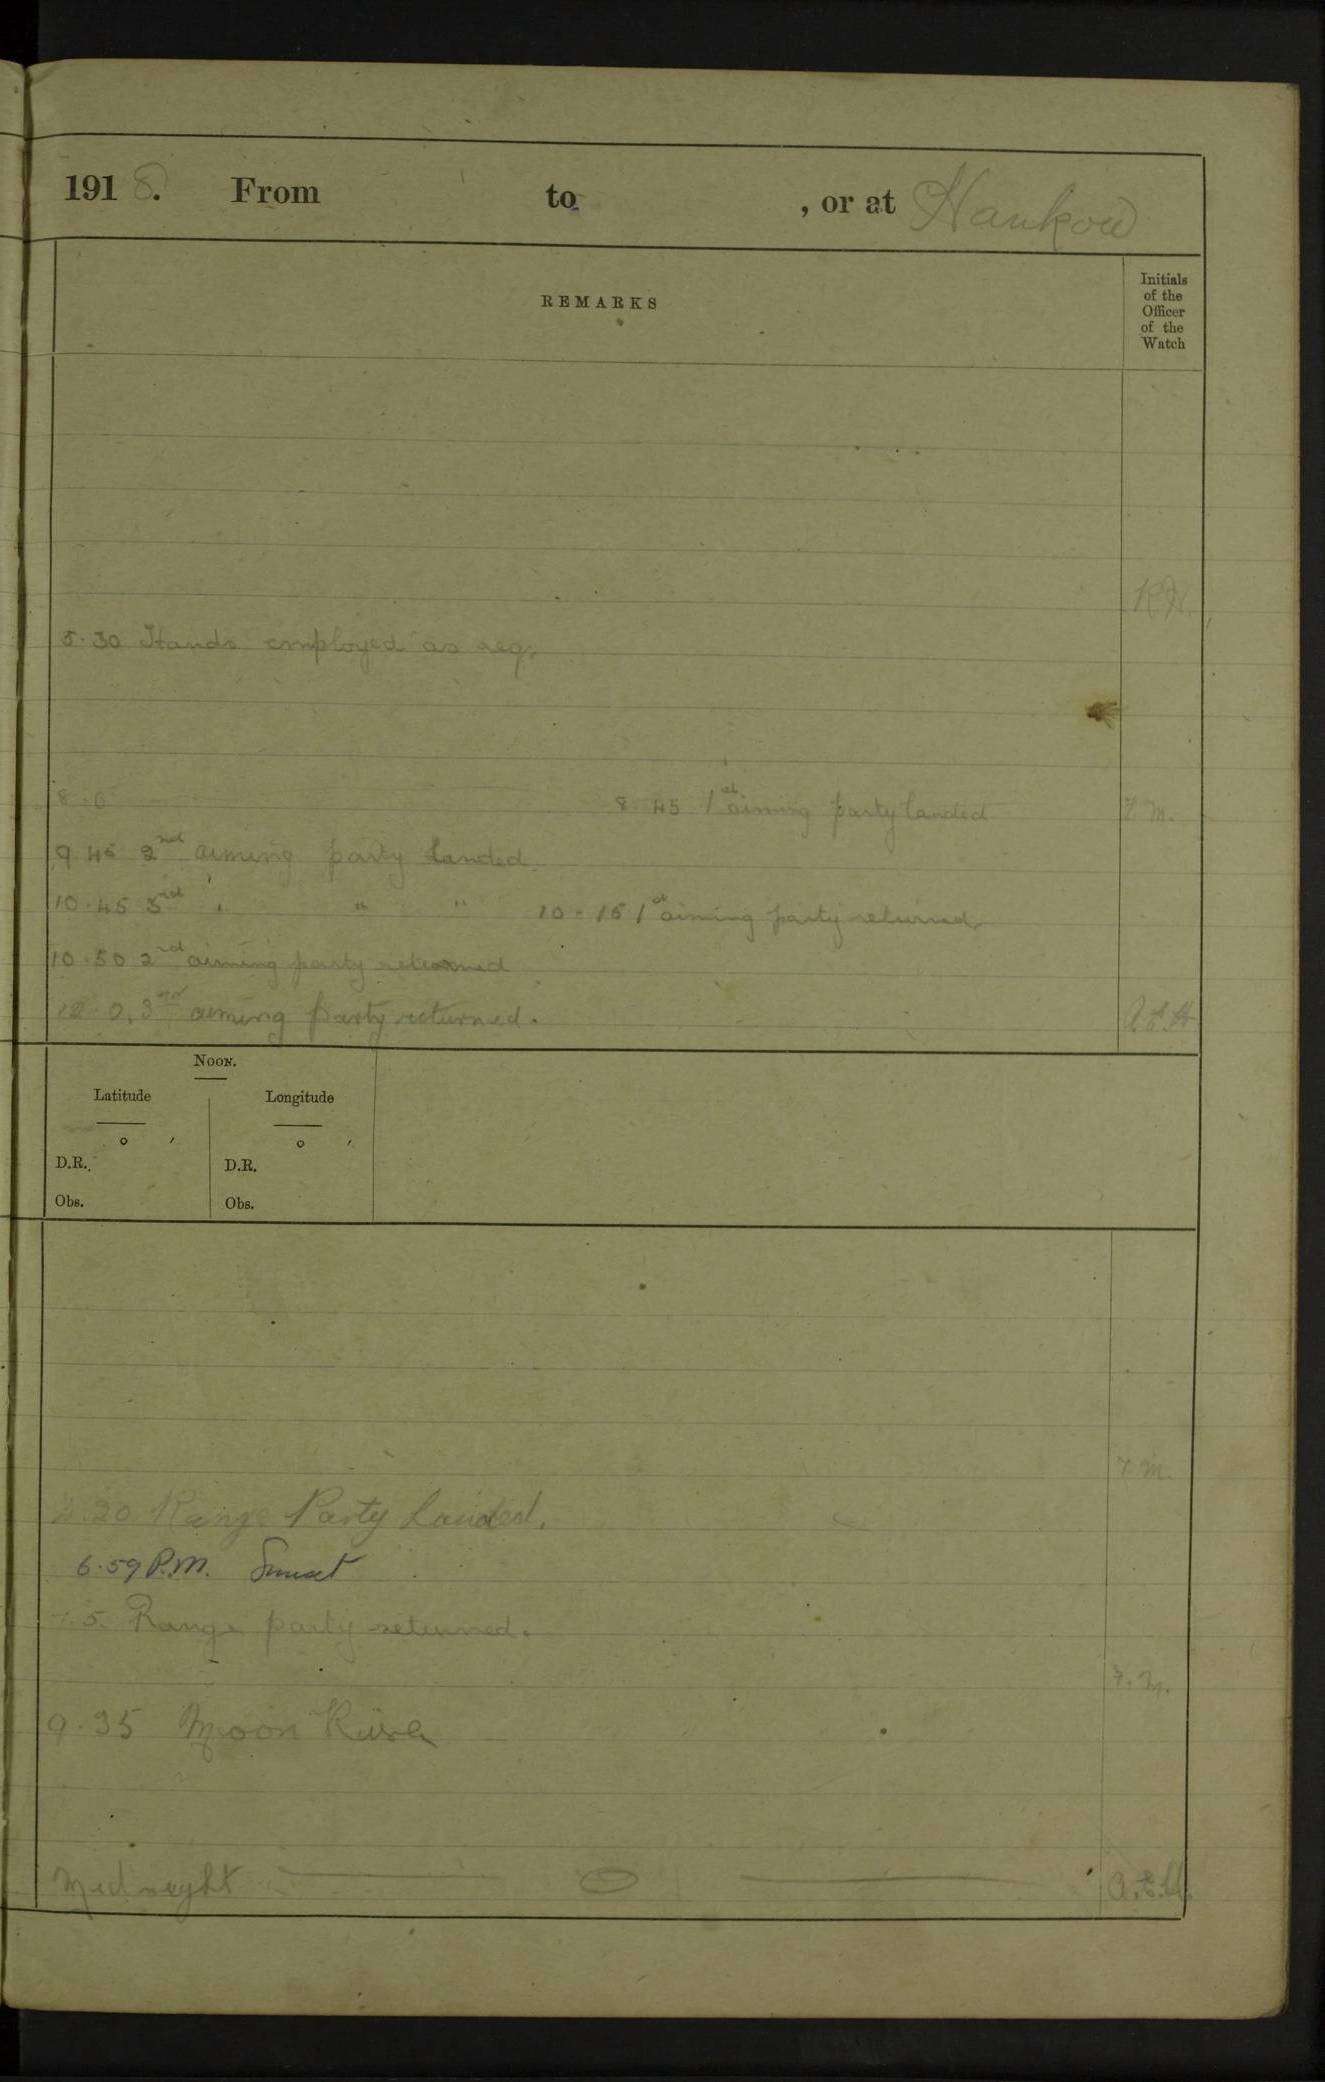 1918. From to , or at Hankow
REMARKS
Initials
of the
Officer
of the
Watch
5.30 Hands employed as req.
8.0 8.45 1st aiming party landed
9.45 2nd aiming party Landed
10.45 3rd " " " 10.15 1st aiming party returned
10.50 2nd aiming party returned
12.0. 3rd aiming party returned.
NOON.
Latitude Longitude
° ′ ° ′
D.R. D.R.
Obs. Obs.
.20 Range Party Landed.
6.59 P.M. Sunset
5. Range party returned.
9.35 Moon Rise
Midnight A.E.H.